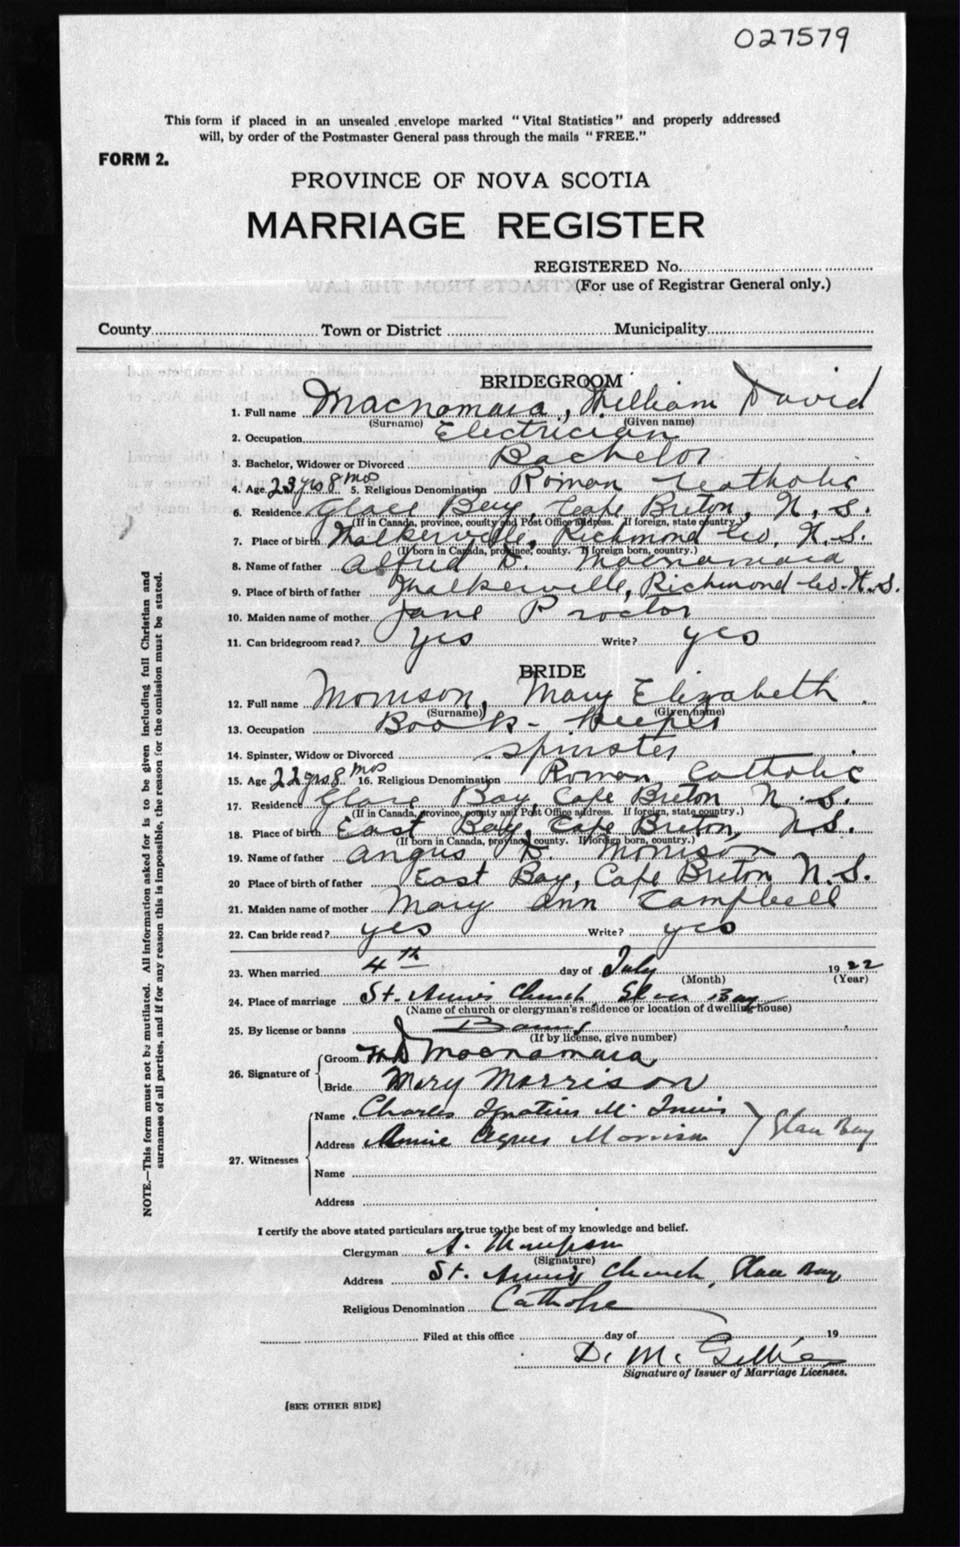 027579
This form if placed in an unsealed envelope marked "Vital Statistics" and properly addressed
will, by order of the Postmaster General pass through the mails "FREE."
FORM 2.
PROVINCE OF NOVA SCOTIA
MARRIAGE REGISTER
REGISTERED No.
(For use of Registrar General only.)
County Town or District Municipality
BRIDEGROOM
1. Full name Macnamara, William David
(Surname) (Given name)
2. Occupation Electrician
3. Bachelor, Widower or Divorced Bachelor
4. Age 23 yrs 8 mos 5. Religious Denomination Roman Catholic
6. Residence Glace Bay, Cape Breton, N. S.
(If in Canada, province, county and Post Office address. If foreign, state country.)
7. Place of birth Walkerville, Richmond Co, N. S.
(If born in Canada, province, county. If foreign born, country.)
8. Name of father Alfred D. Macnamara
9. Place of birth of father Walkerville, Richmond Co. N. S.
10. Maiden name of mother Jane Proctor
11. Can bridegroom read? yes Write? yes
BRIDE
12. Full name Morrison, Mary Elizabeth
(Surname) (Given name)
13. Occupation Book-Keeper
14. Spinster, Widow or Divorced Spinster
15. Age 22 yrs 8 mos 16. Religious Denomination Roman Catholic
17. Residence Glace Bay, Cape Breton N. S.
(If in Canada, province, county and Post Office address. If foreign, state country.)
18. Place of birth East Bay, Cape Breton, N. S.
(If born in Canada, province, county. If foreign born, country.)
19. Name of father Angus D. Morrison
20 Place of birth of father East Bay, Cape Breton N. S.
21. Maiden name of mother Mary Ann Campbell
22. Can bride read? yes Write? yes
23. When married 4th day of July 1922
(Month) (Year)
24. Place of marriage St. Anne's Church Glace Bay
(Name of church or clergyman's residence or location of dwelling house)
25. By license or banns Banns
(If by license, give number)
26. Signature of Groom W D Macnamara
Bride Mary Morrison
27. Witnesses Name Charles Ignatius McInnis
Address Annie Agnes Morrison Glace Bay
Name
Address
I certify the above stated particulars are true to the best of my knowledge and belief.
Clergyman A. Thompson
(Signature)
Address St. Anne's Church, Glace Bay
Religious Denomination Catholic
Filed at this office day of 19
D. McGillis
Signature of Issuer of Marriage Licenses.
[SEE OTHER SIDE]
NOTE.—This form must not be mutilated. All information asked for is to be given including full Christian and
surnames of all parties, and if for any reason this is impossible, the reason for the omission must be stated.